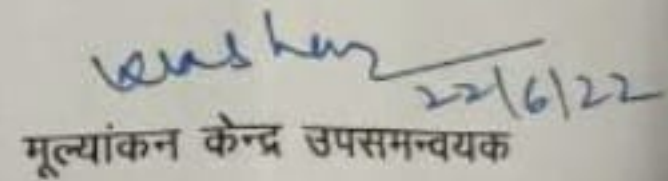 22/6/22
मूल्यांकन केन्द्र उपसमन्वयक